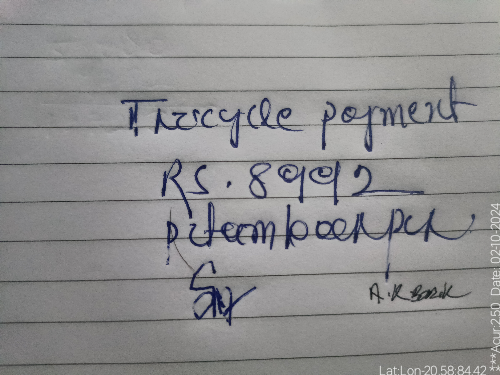 Tricycle payment
RS. 8992
piteambaerpur
A.K Barik
Lat:Lon-20.58:84.42 ***Acur:250 Date: 02-10-2024